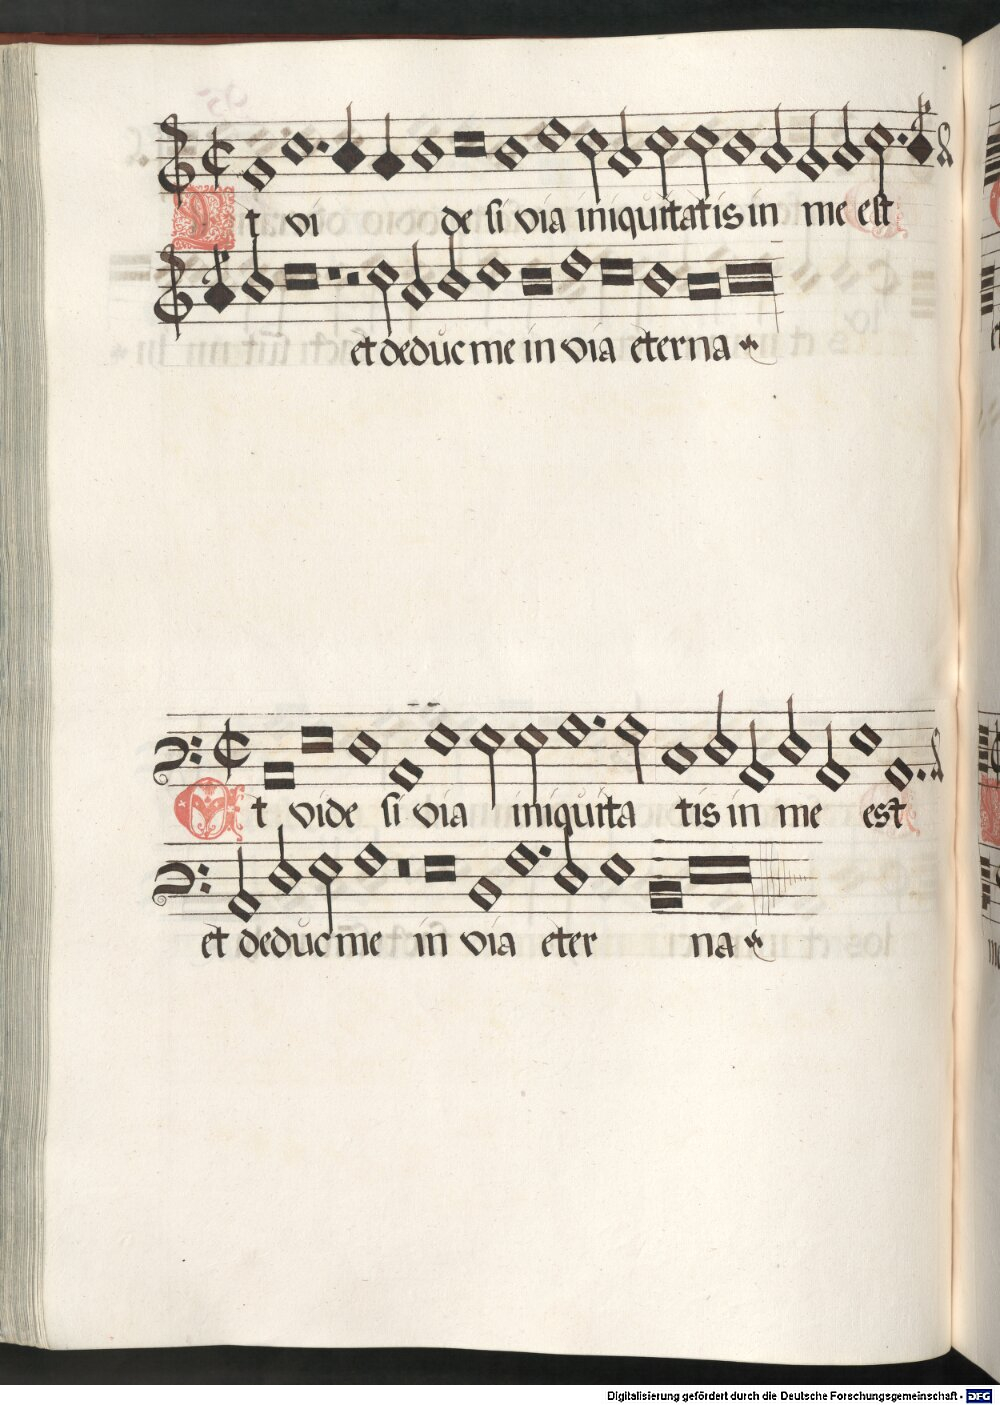 Et vi de si via iniquitatis in me est
et deduc me in via eterna
Et vide si via iniquita tis in me est
et deduc me in via eter na
Digitalisierung gefördert durch die Deutsche Forschungsgemeinschaft - DFG